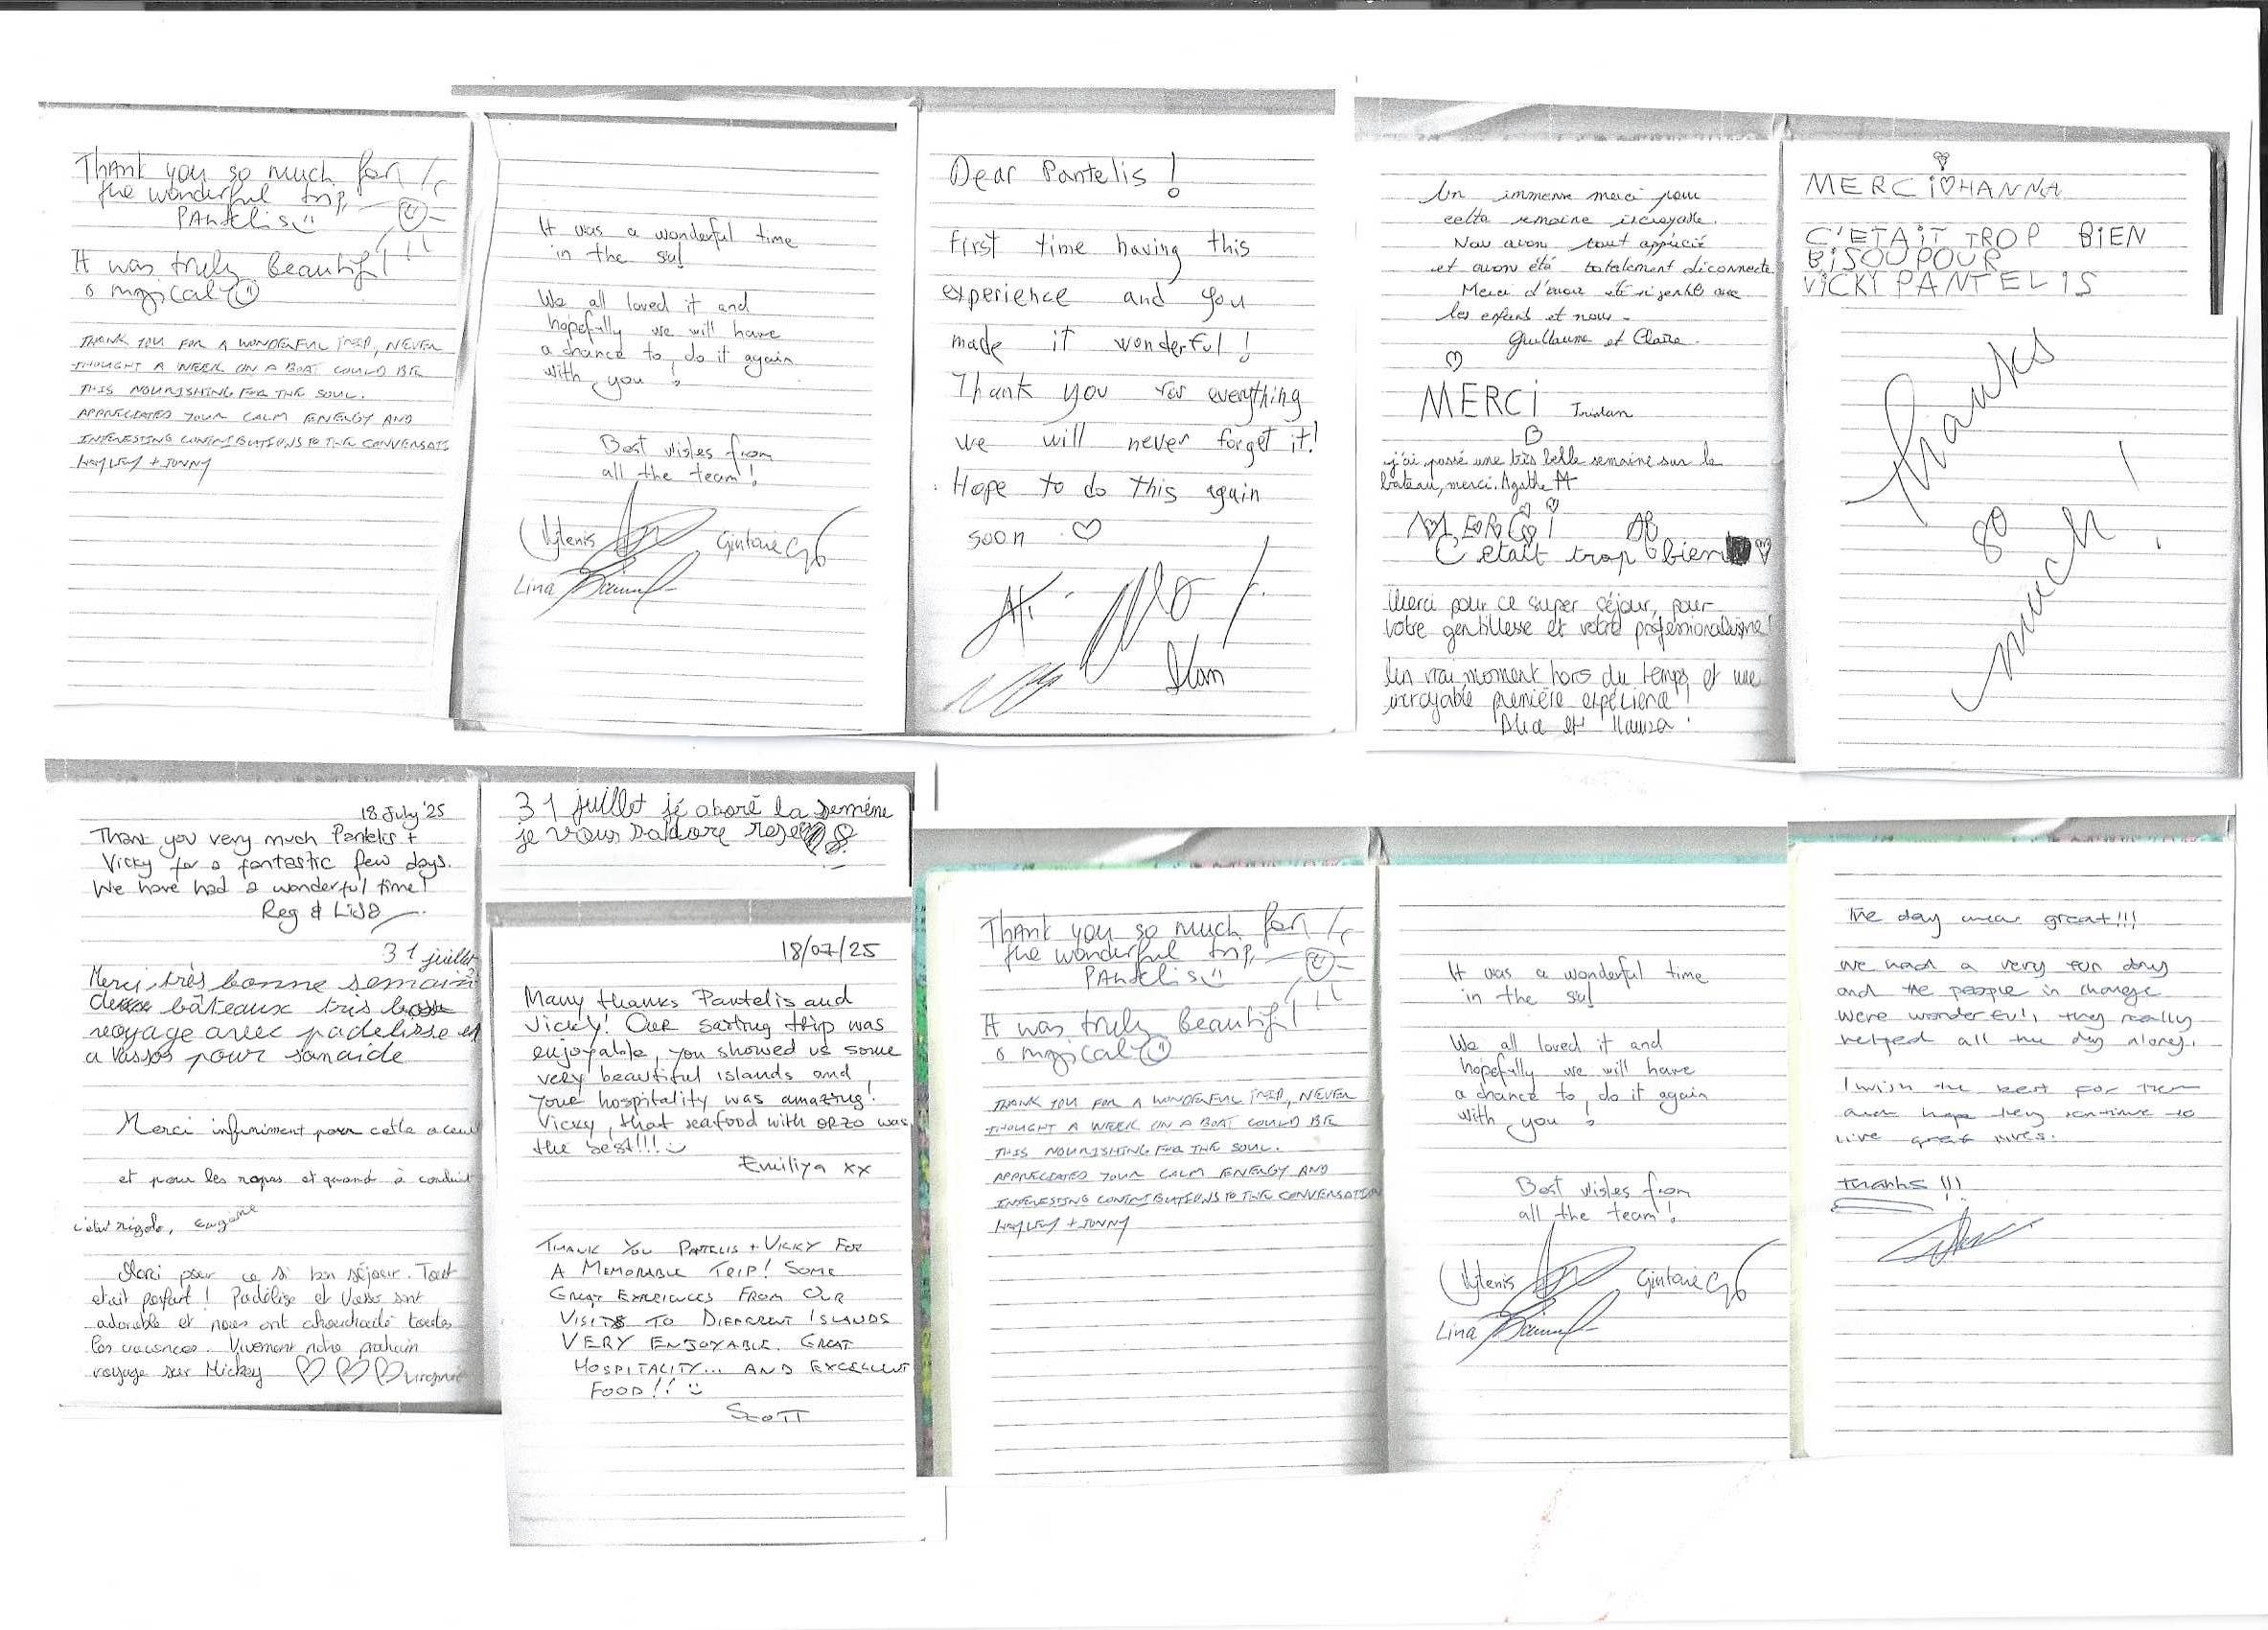 Thank you so much for
the wonderful trip,
PAntelis
It was truly beautiful
& magical
THANK YOU FOR A WONDERFUL TRIP, NEVER
THOUGHT A WEEK ON A BOAT COULD BE
THIS NOURISHING FOR THE SOUL.
APPRECIATED YOUR CALM ENERGY AND
INTERESTING CONTRIBUTIONS TO THE CONVERSATI
HAYLEY + JONNY
It was a wonderful time
in the sul
We all loved it and
hopefully we will have
a chance to do it again
with you!
Best wishes from
all the team!
Vytenis
Gintarė
Lina
Dear Pantelis!
First time having this
experience and you
made it wonderful!
Thank you for everything
we will never forget it!
Hope to do this again
soon
Ilan
Un immense merci pour
cette semaine incroyable.
Nous avons tout apprécié
et avons été totalement déconnecté
Merci d'avoir été si gentils avec
les enfants et nous.
Guillaume et Claire
MERCI Tristan
j'ai passé une très belle semaine sur le
bateau, merci. Agathe
MERCI
C'etait trop bien
Merci pour ce super séjour, pour
votre gentillesse et votre professionalisme!
Un vrai moment hors du temps et une
incroyable première expérience!
MERCI HANNA
C'ETAIT TROP BIEN
BISOU POUR
VICKY PANTELIS
Thanks
so
much!
18 July '25
Thank you very much Pantelis +
Vicky for a fantastic few days.
We have had a wonderful time!
Reg & Lisa
31 juillet
Merci, très bonne semain
bâteaux très
voyage avec padelisse et
a Vassos pour sonaide
Merci infiniment pour cette acceuil
et pour les repas et quand à conduit
c'etait rigolo, Eugene
Merci pour ce si bon séjour. Tout
etait parfait! Padélise et Vasso sont
adorable et nous ont chouchouté toutes
les vacances. Vivement notre prochain
voyage sur Mickey Virginie
31 juillet jé adoré la semène
je vous sadore
18/07/25
Many thanks Pantelis and
Vicky! Our sailing trip was
enjoyable, you showed us some
very beautiful islands and
your hospitality was amazing!
Vicky, that seafood with orzo was
the best!!!
Emiliya xx
THANK YOU PANTELIS + VICKY FOR
A MEMORABLE TRIP! SOME
GREAT EXPERIENCES FROM OUR
VISITS TO DIFFERENT ISLANDS
VERY ENJOYABLE. GREAT
HOSPITALITY... AND EXCELLENT
FOOD!!
SCOTT
Thank you so much for
the wonderful trip,
PAntelis
It was truly beautiful
& magical
THANK YOU FOR A WONDERFUL TRIP, NEVER
THOUGHT A WEEK ON A BOAT COULD BE
THIS NOURISHING FOR THE SOUL.
APPRECIATED YOUR CALM ENERGY AND
INTERESTING CONTRIBUTIONS TO THE CONVERSATION
HAYLEY + JONNY
It was a wonderful time
in the sul
We all loved it and
hopefully we will have
a chance to do it again
with you!
Best wishes from
all the team!
Vytenis
Gintarė
Lina
The day was great!!!
We had a very fun day
and the people in charge
were wonderful, they really
helped all the day along.
I wish the best for them
and hope they continue to
live great lives.
thanks!!!